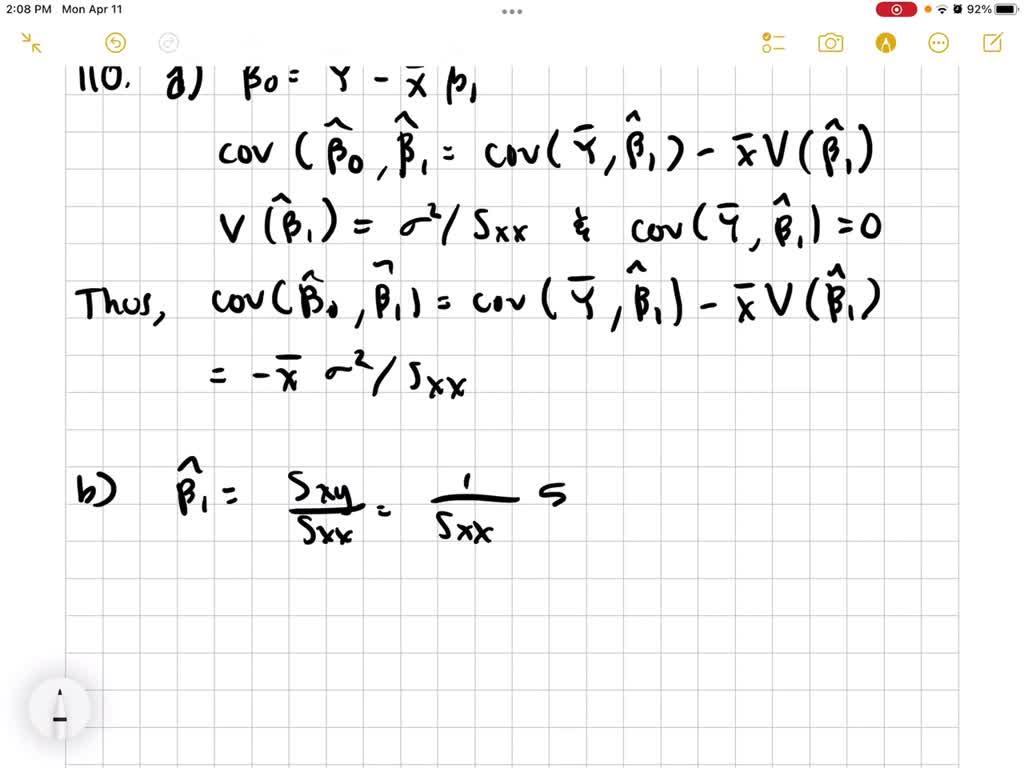 2:08 PM Mon Apr 11
92%
110. a) β0 = Y - x̄ β1
cov (β̂0, β̂1 = cov(Ȳ, β̂1) - x̄ V(β̂1)
V (β̂1) = σ²/Sxx & cov(Ȳ, β̂1) = 0
Thus, cov(β̂0, β̂1) = cov(Ȳ, β̂1) - x̄ V(β̂1)
= -x̄ σ²/Sxx
b) β̂1 = Sxy/Sxx = 1/Sxx S